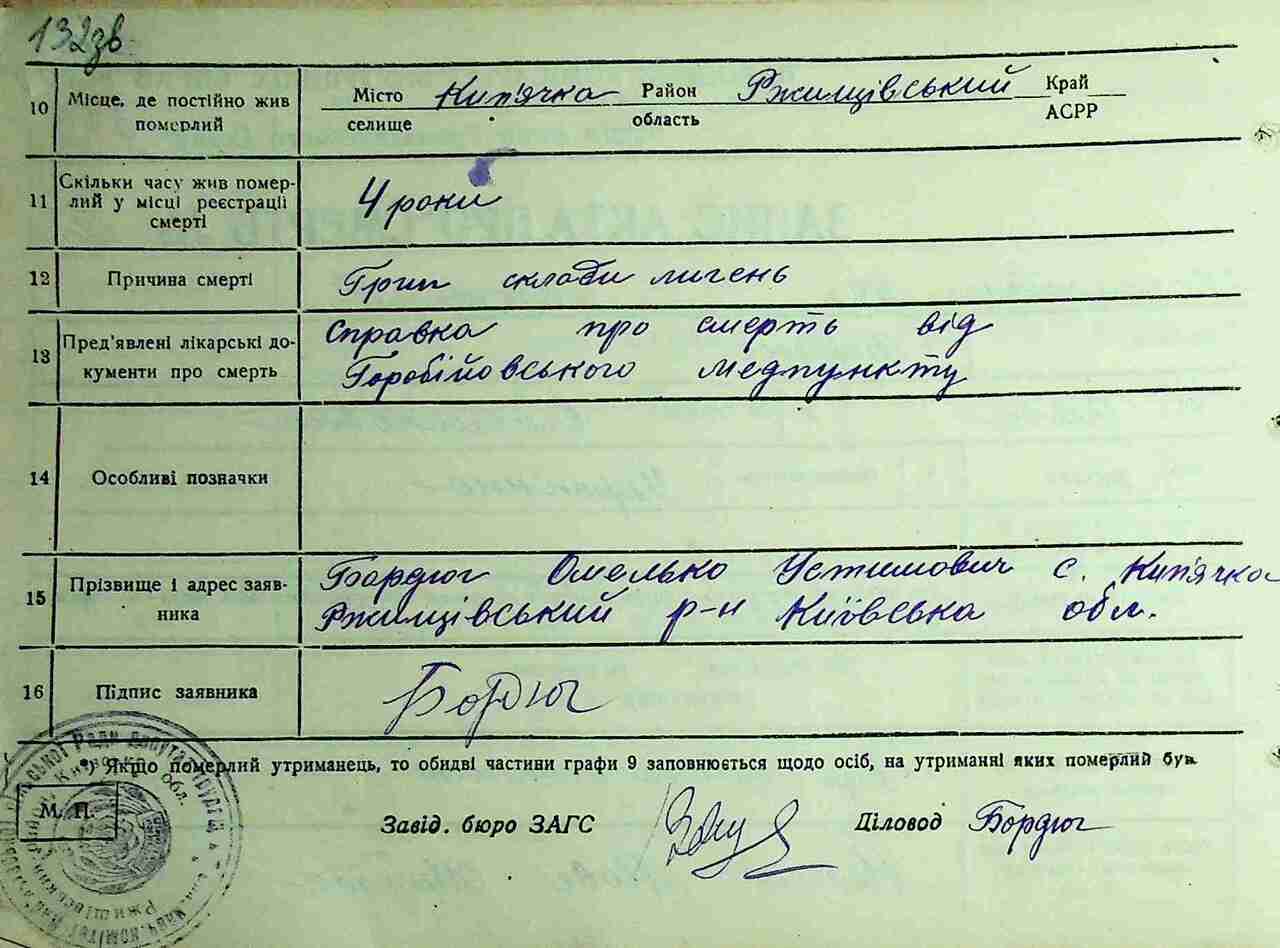 132зв
10 Місце, де постійно жив померлий
Місто Кип'ячка Район Ржищівський Край
селище область АСРР
11 Скільки часу жив помер-
лий у місці реєстрації
смерті
4 роки
12 Причина смерті Грип склади лигень
13 Пред'явлені лікарські до-
кументи про смерть
Справка про смерть від
Горобійовського медпункту
14 Особливі позначки
15 Прізвище і адрес заяв-
ника
Бордюг Омелько Устимович с. Кип'ячка
Ржищівський р-н Київська обл.
16 Підпис заявника Бордюг
*) Якщо померлий утриманець, то обидві частини графи 9 заповнюється щодо осіб, на утриманні яких померлий був.
М. П. Завід. бюро ЗАГС Діловод Бордюг